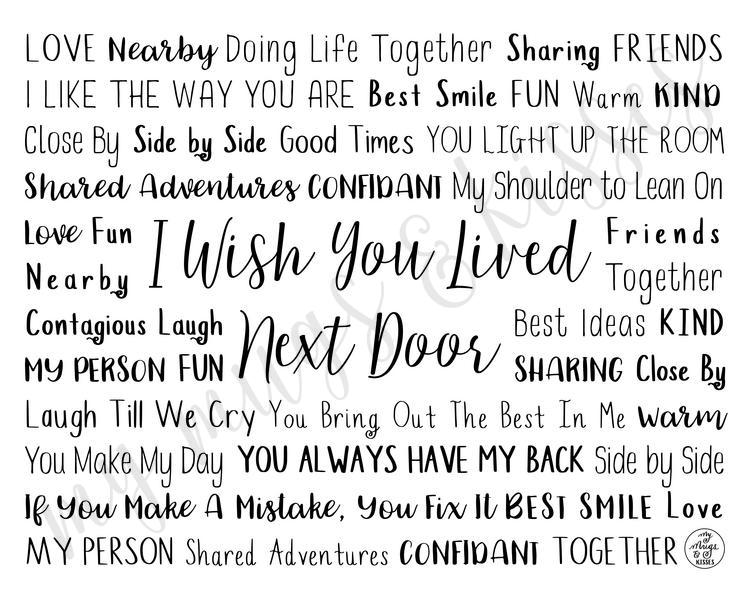 LOVE Nearby Doing Life Together Sharing FRIENDS
I LIKE THE WAY YOU ARE Best Smile FUN Warm KIND
Close By Side by Side Good Times YOU LIGHT UP THE ROOM
Shared Adventures CONFIDANT My Shoulder to Lean On
Love Fun
Nearby
I Wish You Lived
Friends
Together
Contagious Laugh
MY PERSON FUN
Next Door
Best Ideas KIND
SHARING Close By
Laugh Till We Cry You Bring Out The Best In Me warm
You Make My Day YOU ALWAYS HAVE MY BACK Side by Side
If You Make A Mistake, You Fix It BEST SMILE Love
MY PERSON Shared Adventures CONFIDANT TOGETHER
my
Mugs
&
KISSES
my mugs & kisses